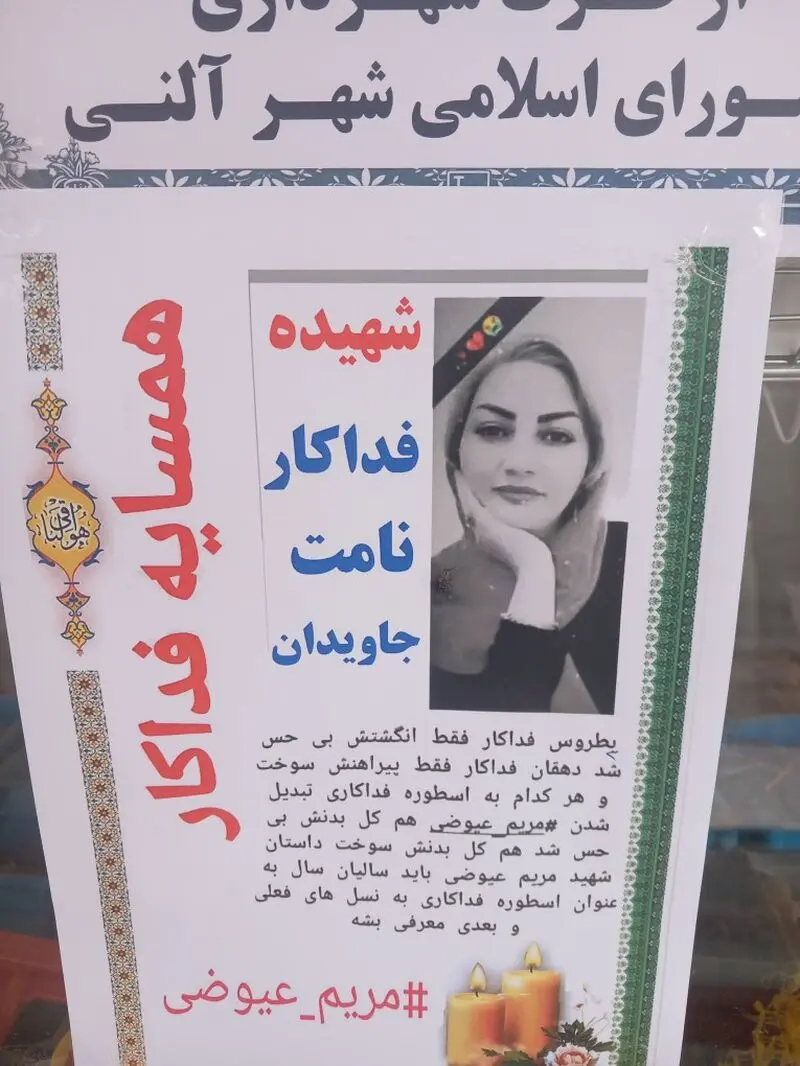 از طرف شهرداری
ـورای اسلامی شهر آلنی
همسایه فداکار
شهیده
فداکار
نامت
جاویدان
هوالباقی
پطروس فداکار فقط انگشتش بی حس
شد دهقان فداکار فقط پیراهنش سوخت
و هر کدام به اسطوره فداکاری تبدیل
شدن #مریم_عیوضی هم کل بدنش بی
حس شد هم کل بدنش سوخت داستان
شهید مریم عیوضی باید سالیان سال به
عنوان اسطوره فداکاری به نسل های فعلی
و بعدی معرفی بشه
#مریم_عیوضی